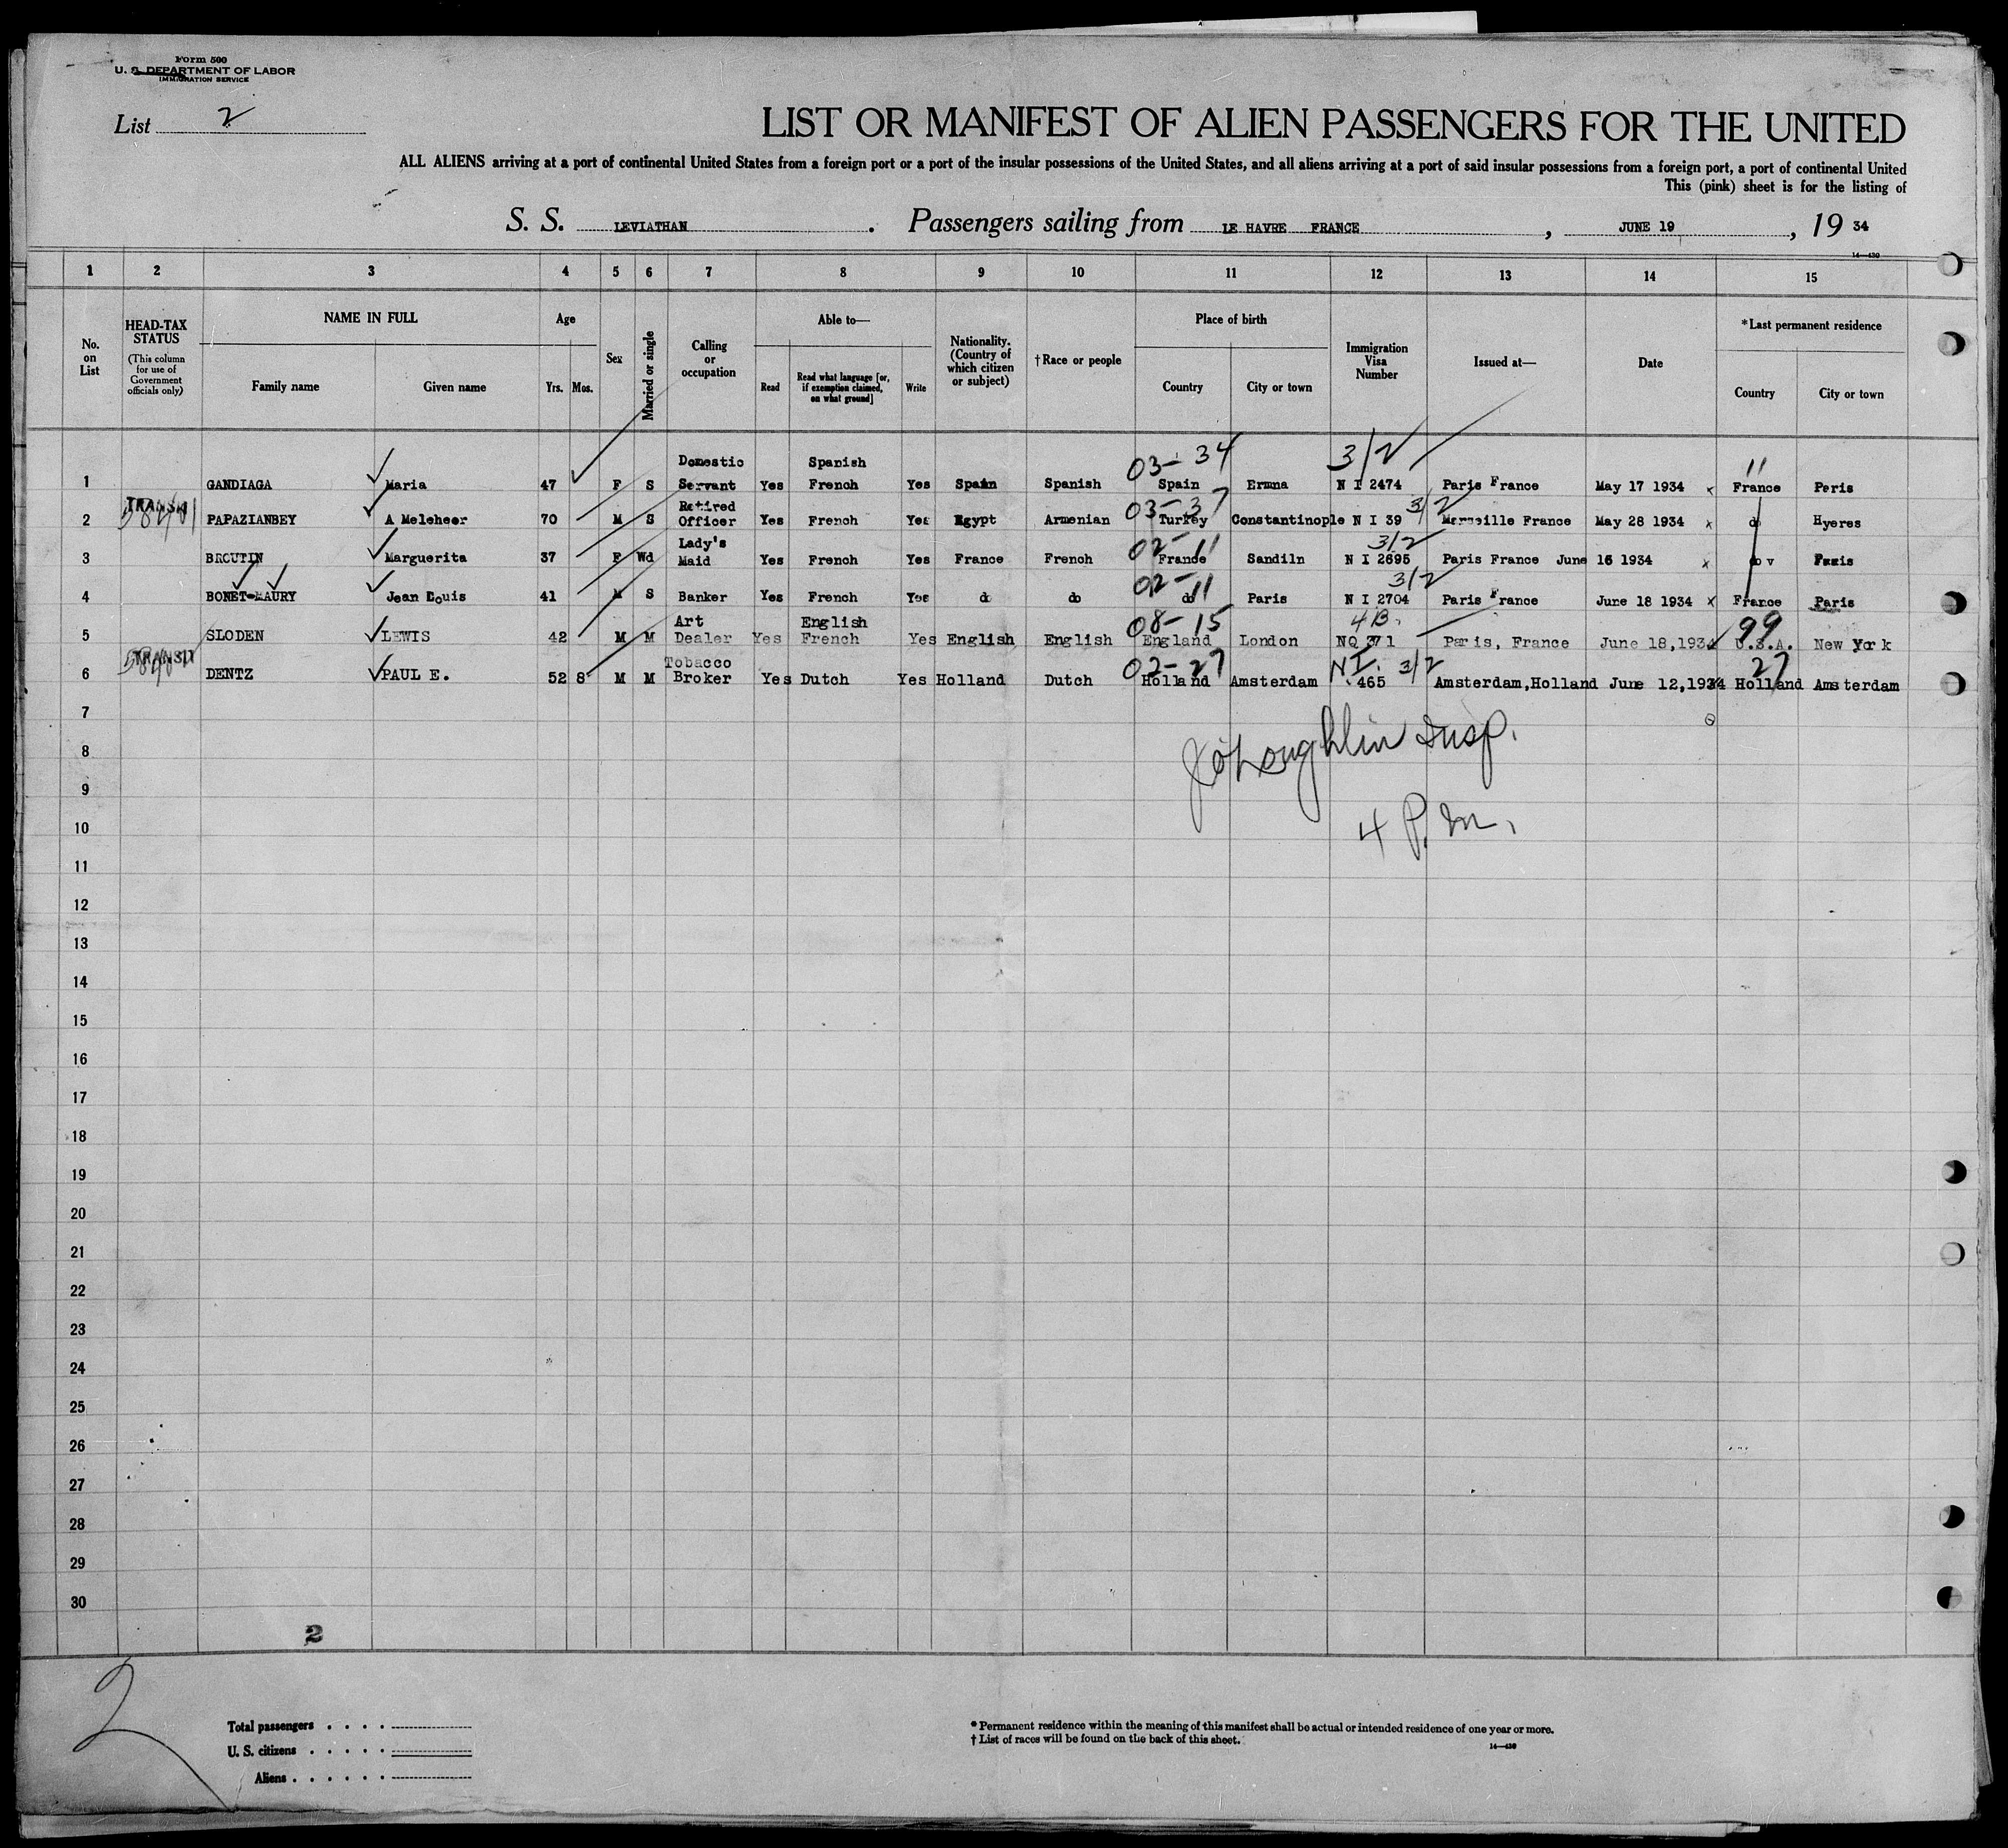 Form 500
U. S. DEPARTMENT OF LABOR
IMMIGRATION SERVICE
List 2
LIST OR MANIFEST OF ALIEN PASSENGERS FOR THE UNITED
ALL ALIENS arriving at a port of continental United States from a foreign port or a port of the insular possessions of the United States, and all aliens arriving at a port of said insular possessions from a foreign port, a port of continental United
This (pink) sheet is for the listing of
S. S. LEVIATHAN. Passengers sailing from LE HAVRE FRANCE, JUNE 19, 19 34
14—430
1 2 3 4 5 6 7 8 9 10 11 12 13 14 15
No. on List
HEAD-TAX STATUS (This column for use of Government officials only)
NAME IN FULL
Family name Given name
Age
Yrs. Mos.
Sex
Married or single
Calling or occupation
Able to—
Read Read what language [or, if exemption claimed, on what ground] Write
Nationality. (Country of which citizen or subject)
†Race or people
Place of birth
Country City or town
Immigration Visa Number
Issued at—
Date
*Last permanent residence
Country City or town
03-34 3/2 11
1 GANDIAGA Maria 47 F S Domestic Servant Yes Spanish French Yes Spain Spanish Spain Ermna N I 2474 Paris France May 17 1934 x France Peris
TRANSIT 03-37 3/2
2 PAPAZIANBEY A Meleheer 70 M S Retired Officer Yes French Yes Egypt Armenian Turkey Constantinople N I 39 Marseille France May 28 1934 x do Hyeres
02-11 3/2
3 BROUTIN Marguerita 37 F Wd Lady's Maid Yes French Yes France French France Sandiln N I 2695 Paris France June 16 1934 x do v Paris
02-11 3/2
4 BONET-MAURY Jean Louis 41 M S Banker Yes French Yes do do do Paris N I 2704 Paris France June 18 1934 x France Paris
08-15 4B. 99
5 SLODEN LEWIS 42 M M Art Dealer Yes English French Yes English English England London NQ 371 Paris, France June 18,1934 U.S.A. New York
TRANSIT 02-27 NI. 3/2 27
6 DENTZ PAUL E. 52 8 M M Tobacco Broker Yes Dutch Yes Holland Dutch Holland Amsterdam 465 Amsterdam,Holland June 12,1934 Holland Amsterdam
7
JO'Loughlin Insp.
8
9
10
4 P.m.
11
12
13
14
15
16
17
18
19
20
21
22
23
24
25
26
27
28
29
30
2
2
Total passengers
U. S. citizens
Aliens
* Permanent residence within the meaning of this manifest shall be actual or intended residence of one year or more.
† List of races will be found on the back of this sheet.
14—430